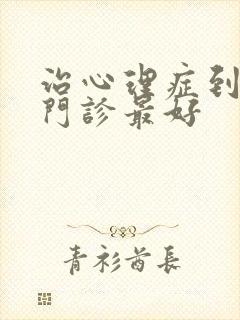 治心理症到
門診最好
青衫酋長